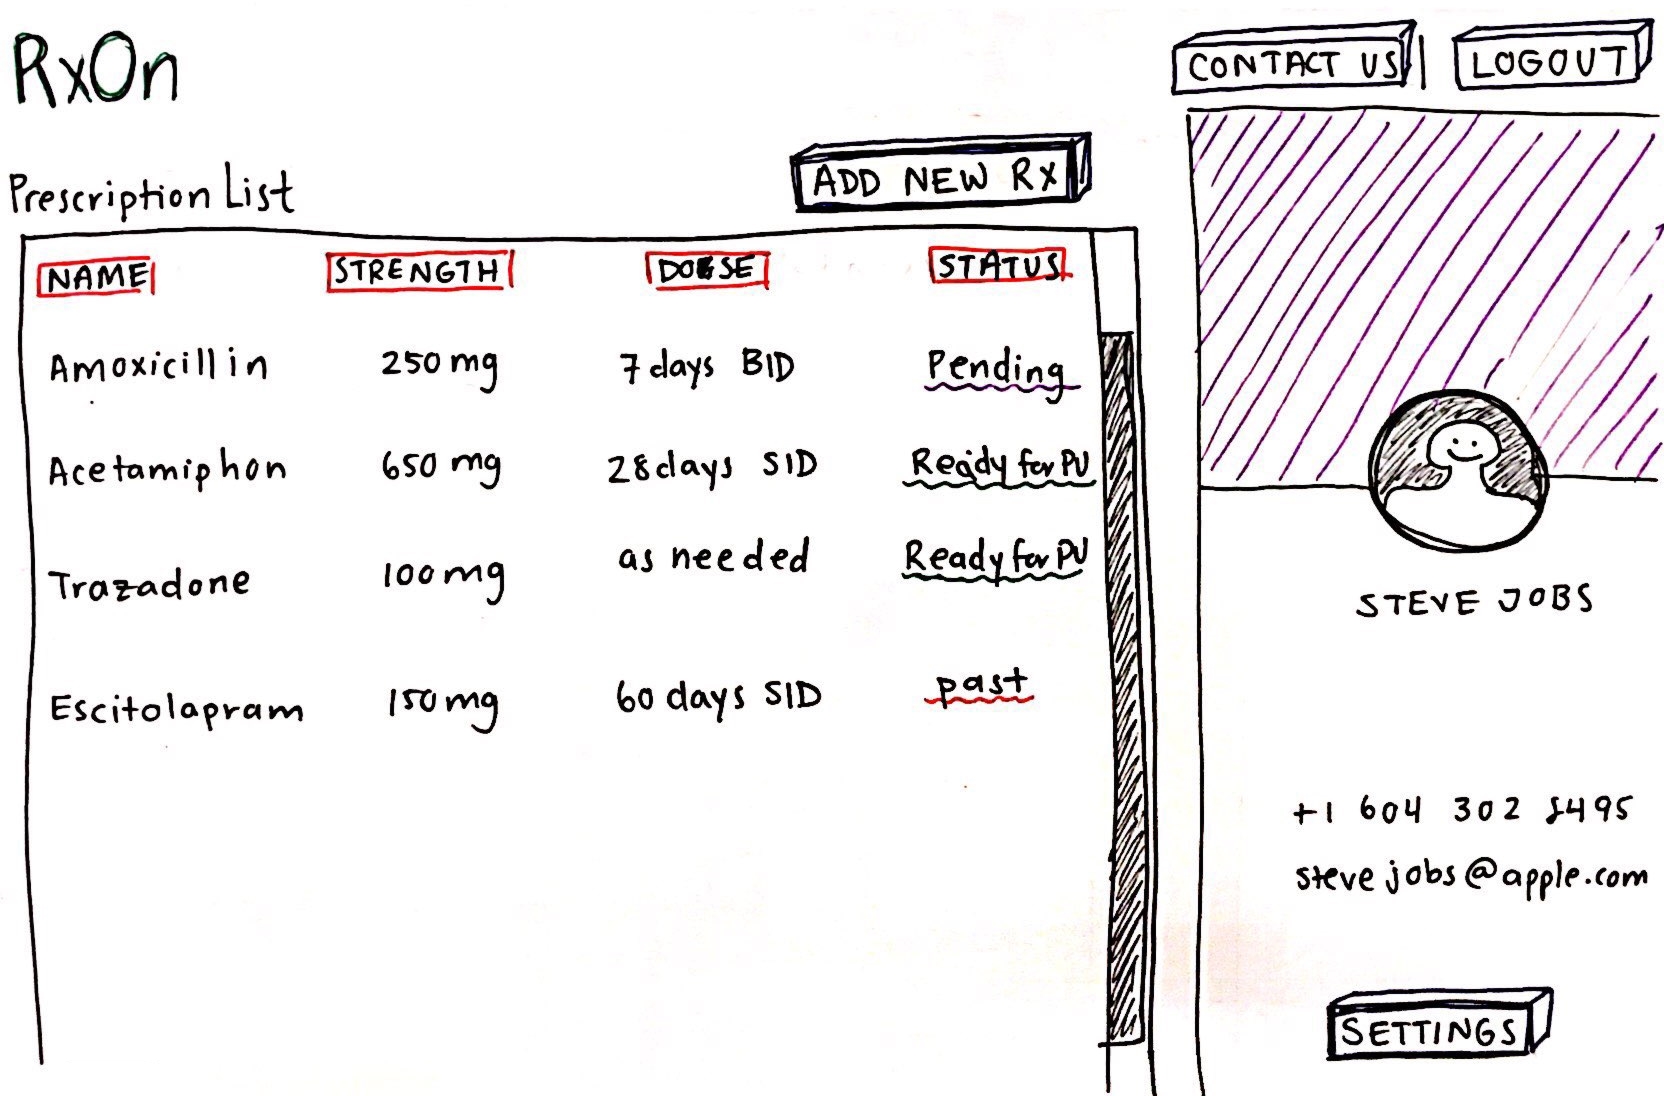 RxOn
CONTACT US
LOGOUT
Prescription List
ADD NEW RX
NAME STRENGTH DOSE STATUS
Amoxicillin 250 mg 7 days BID Pending
Acetamiphon 650 mg 28 days SID Ready for PU
Trazadone 100 mg as needed Ready for PU
Escitolapram 150 mg 60 days SID past
STEVE JOBS
+1 604 302 8495
stevejobs@apple.com
SETTINGS